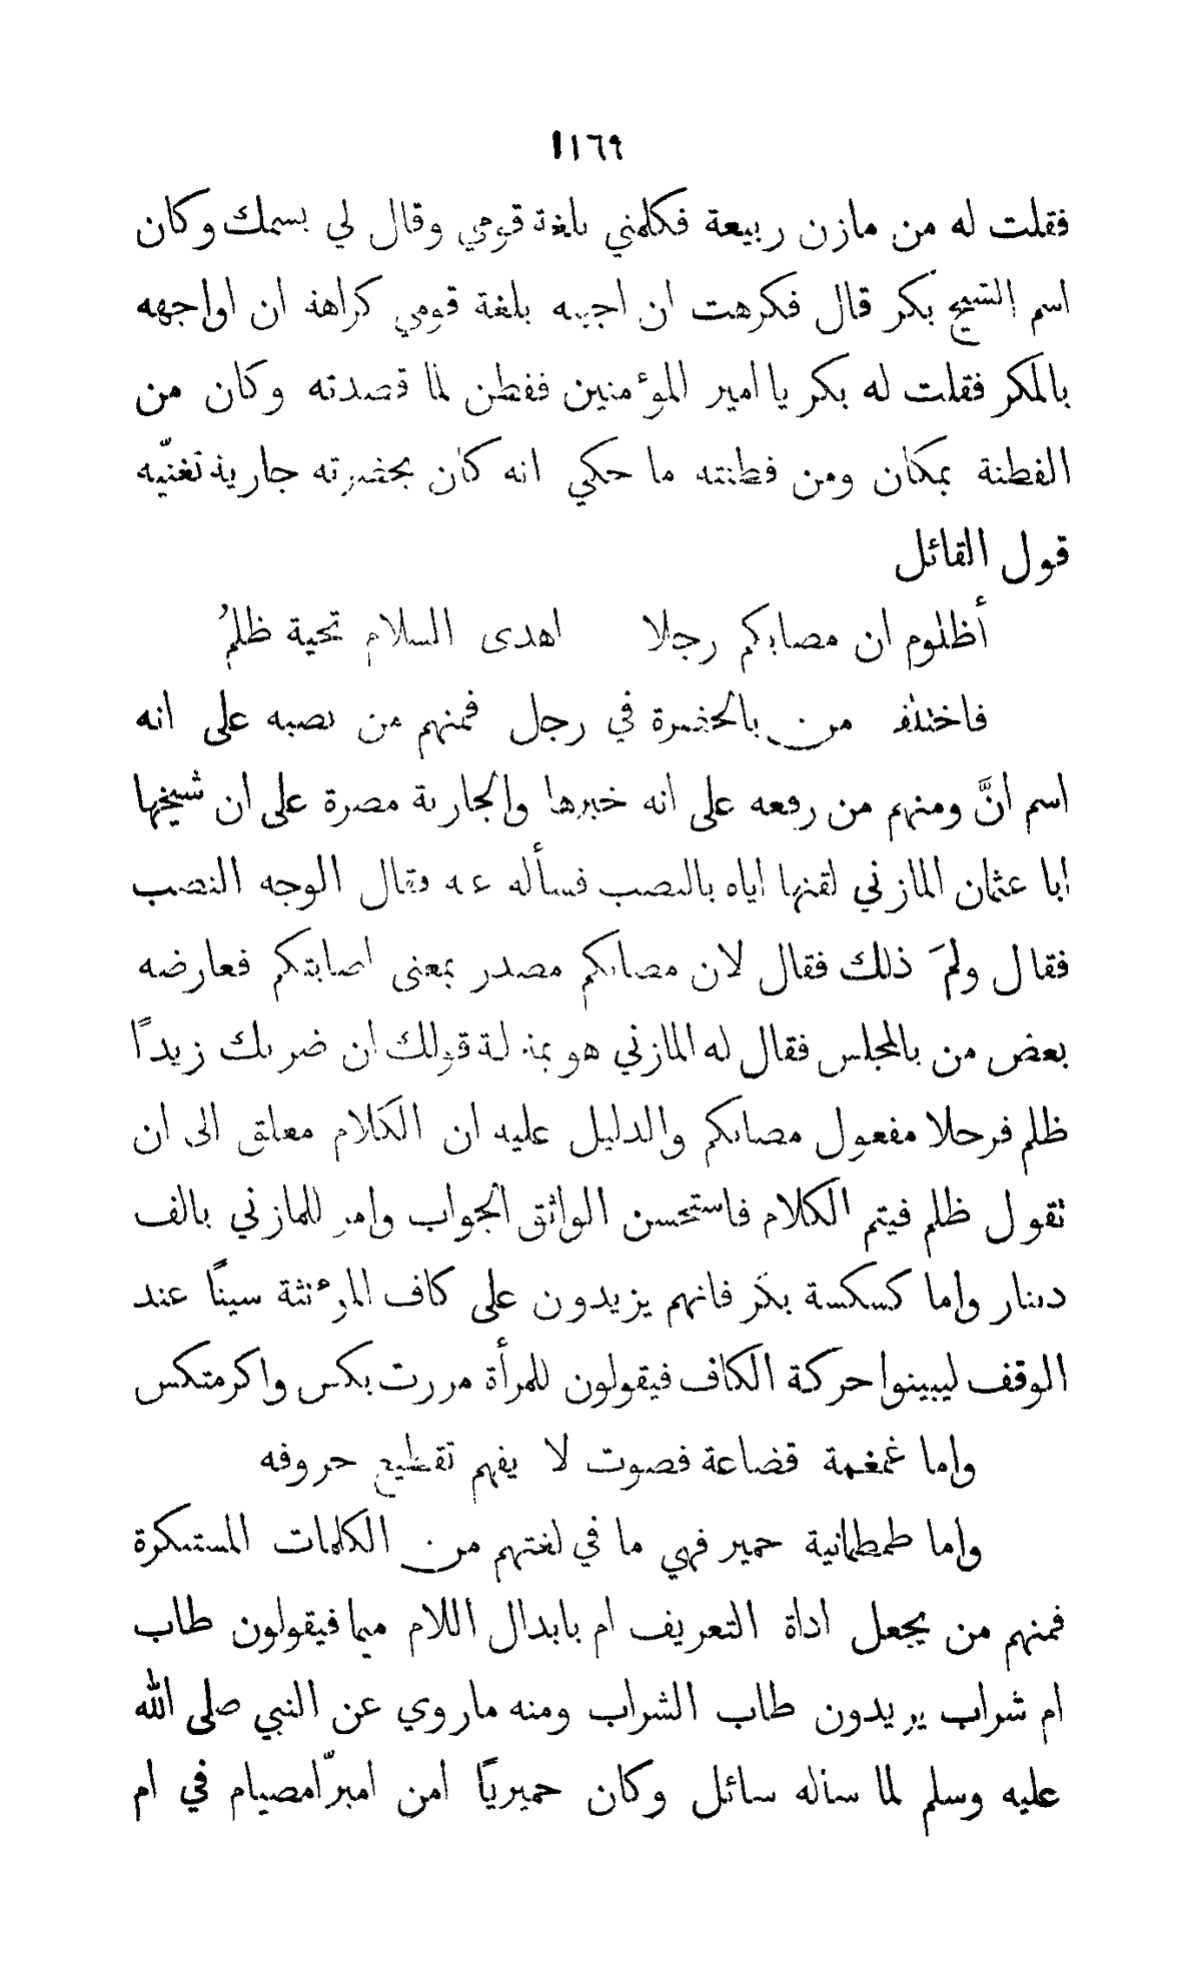 ١١٦٩
فقلت له من مازن ربيعة فكلمني بلغة قومي وقال لي بسمك وكان
اسم الشيخ بكر قال فكرهت ان اجيبه بلغة قومي كراهة ان اواجهه
بالمكر فقلت له بكر يا امير المؤمنين ففطن لما قصدته وكان من
الفطنة بمكان ومن فطنته ما حكي انه كان بحضرته جارية تغنّيه
قول القائل
أظلوم ان مصابكم رجلا اهدى السلام تحية ظلمُ
فاختلف من بالحضرة في رجل فمنهم من نصبه على انه
اسم انَّ ومنهم من رفعه على انه خبرها والجارية مصرة على ان شيخها
ابا عثمان المازني لقنها اياه بالنصب فسأله عنه فقال الوجه النصب
فقال ولمَ ذلك فقال لان مصابكم مصدر بمعنى اصابتكم فعارضه
بعض من بالمجلس فقال له المازني هو بمنزلة قولك ان ضربك زيدًا
ظلم فرجلا مفعول مصابكم والدليل عليه ان الكلام معلق الى ان
تقول ظلم فيتم الكلام فاستحسن الواثق الجواب وامر للمازني بالف
دينار واما كسكسة بكر فانهم يزيدون على كاف المؤنثة سينًا عند
الوقف ليبينوا حركة الكاف فيقولون للمرأة مررت بكس واكرمتكس
واما غمغمة قضاعة فصوت لا يفهم تقطيع حروفه
واما طمطمانية حمير فهي ما في لغتهم من الكلمات المستنكرة
فمنهم من يجعل اداة التعريف ام بابدال اللام ميما فيقولون طاب
ام شراب يريدون طاب الشراب ومنه ما روي عن النبي صلى الله
عليه وسلم لما سأله سائل وكان حميريًا امن امبرّ امصيام في ام